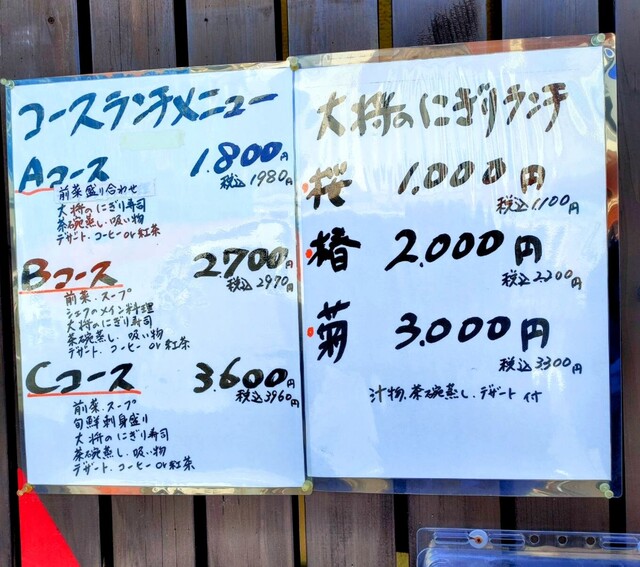 コースランチメニュー
Aコース 1.800円
税込1980円
前菜盛り合わせ
大将のにぎり寿司
茶碗蒸し、吸い物
デザート、コーヒーor紅茶
Bコース 2700円
税込2970円
前菜、スープ
シェフのメイン料理
大将のにぎり寿司
茶碗蒸し、吸い物
デザート、コーヒーor紅茶
Cコース 3.600円
税込3960円
前菜、スープ
旬鮮刺身盛り
大将のにぎり寿司
茶碗蒸し、吸い物
デザート、コーヒーor紅茶
大将のにぎりランチ
桜 1.000円
税込1,100円
椿 2.000円
税込2,200円
菊 3.000円
税込3300円
汁物、茶碗蒸し、デザート付